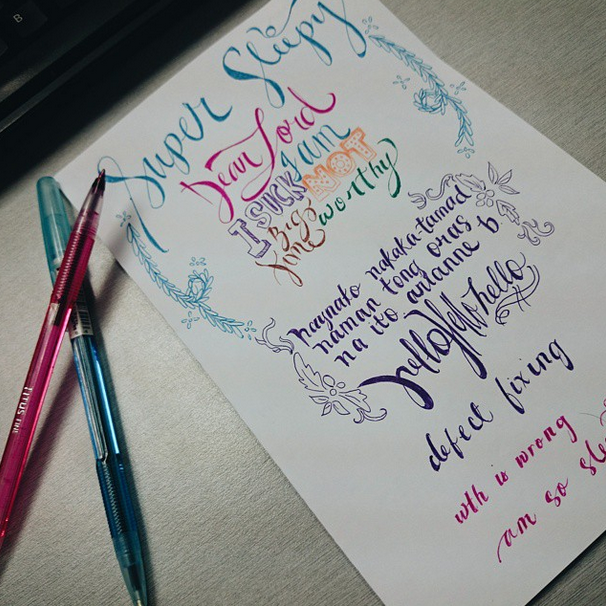 Super Sleepy
Dear Lord
I am
I SUCK NOT
Big worthy
time
haynato nakaka-tamad
naman tong oras
na ito arianne b
hello hello hello
defect fixing
wth is wrong
am so
TITUS
B